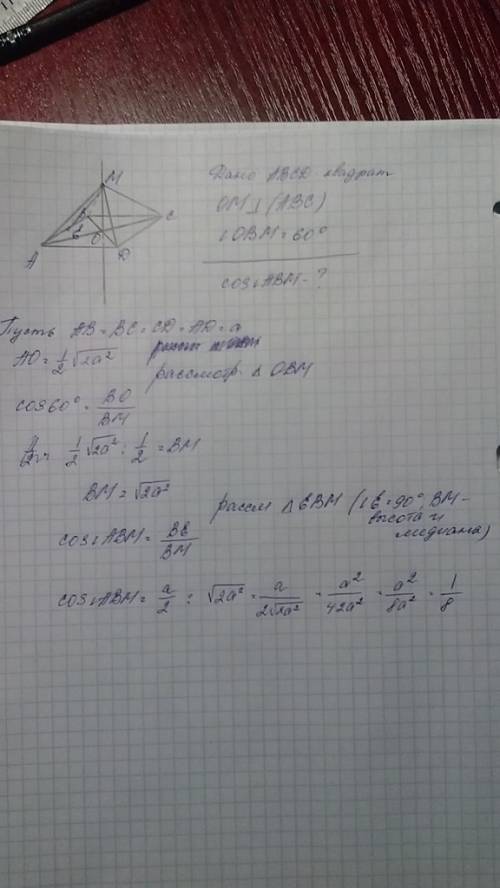 M
C
B
E
O
A
D
Дано ABCD квадрат
OM⊥(ABC)
∠OBM=60°
cos∠ABM-?
Пусть AB=BC=CD=AD=a
AO=1/2√2a²
рассмотр. △ OBM
cos60°=BO/BM
1/2√2a² : 1/2 = BM
BM=√2a²
рассм △EBM (∠E=90°, BM-
высота и
медиана)
cos∠ABM=BE/BM
cos∠ABM=a/2 : √2a² = a/2√2a² = a²/42a² = a²/8a² = 1/8